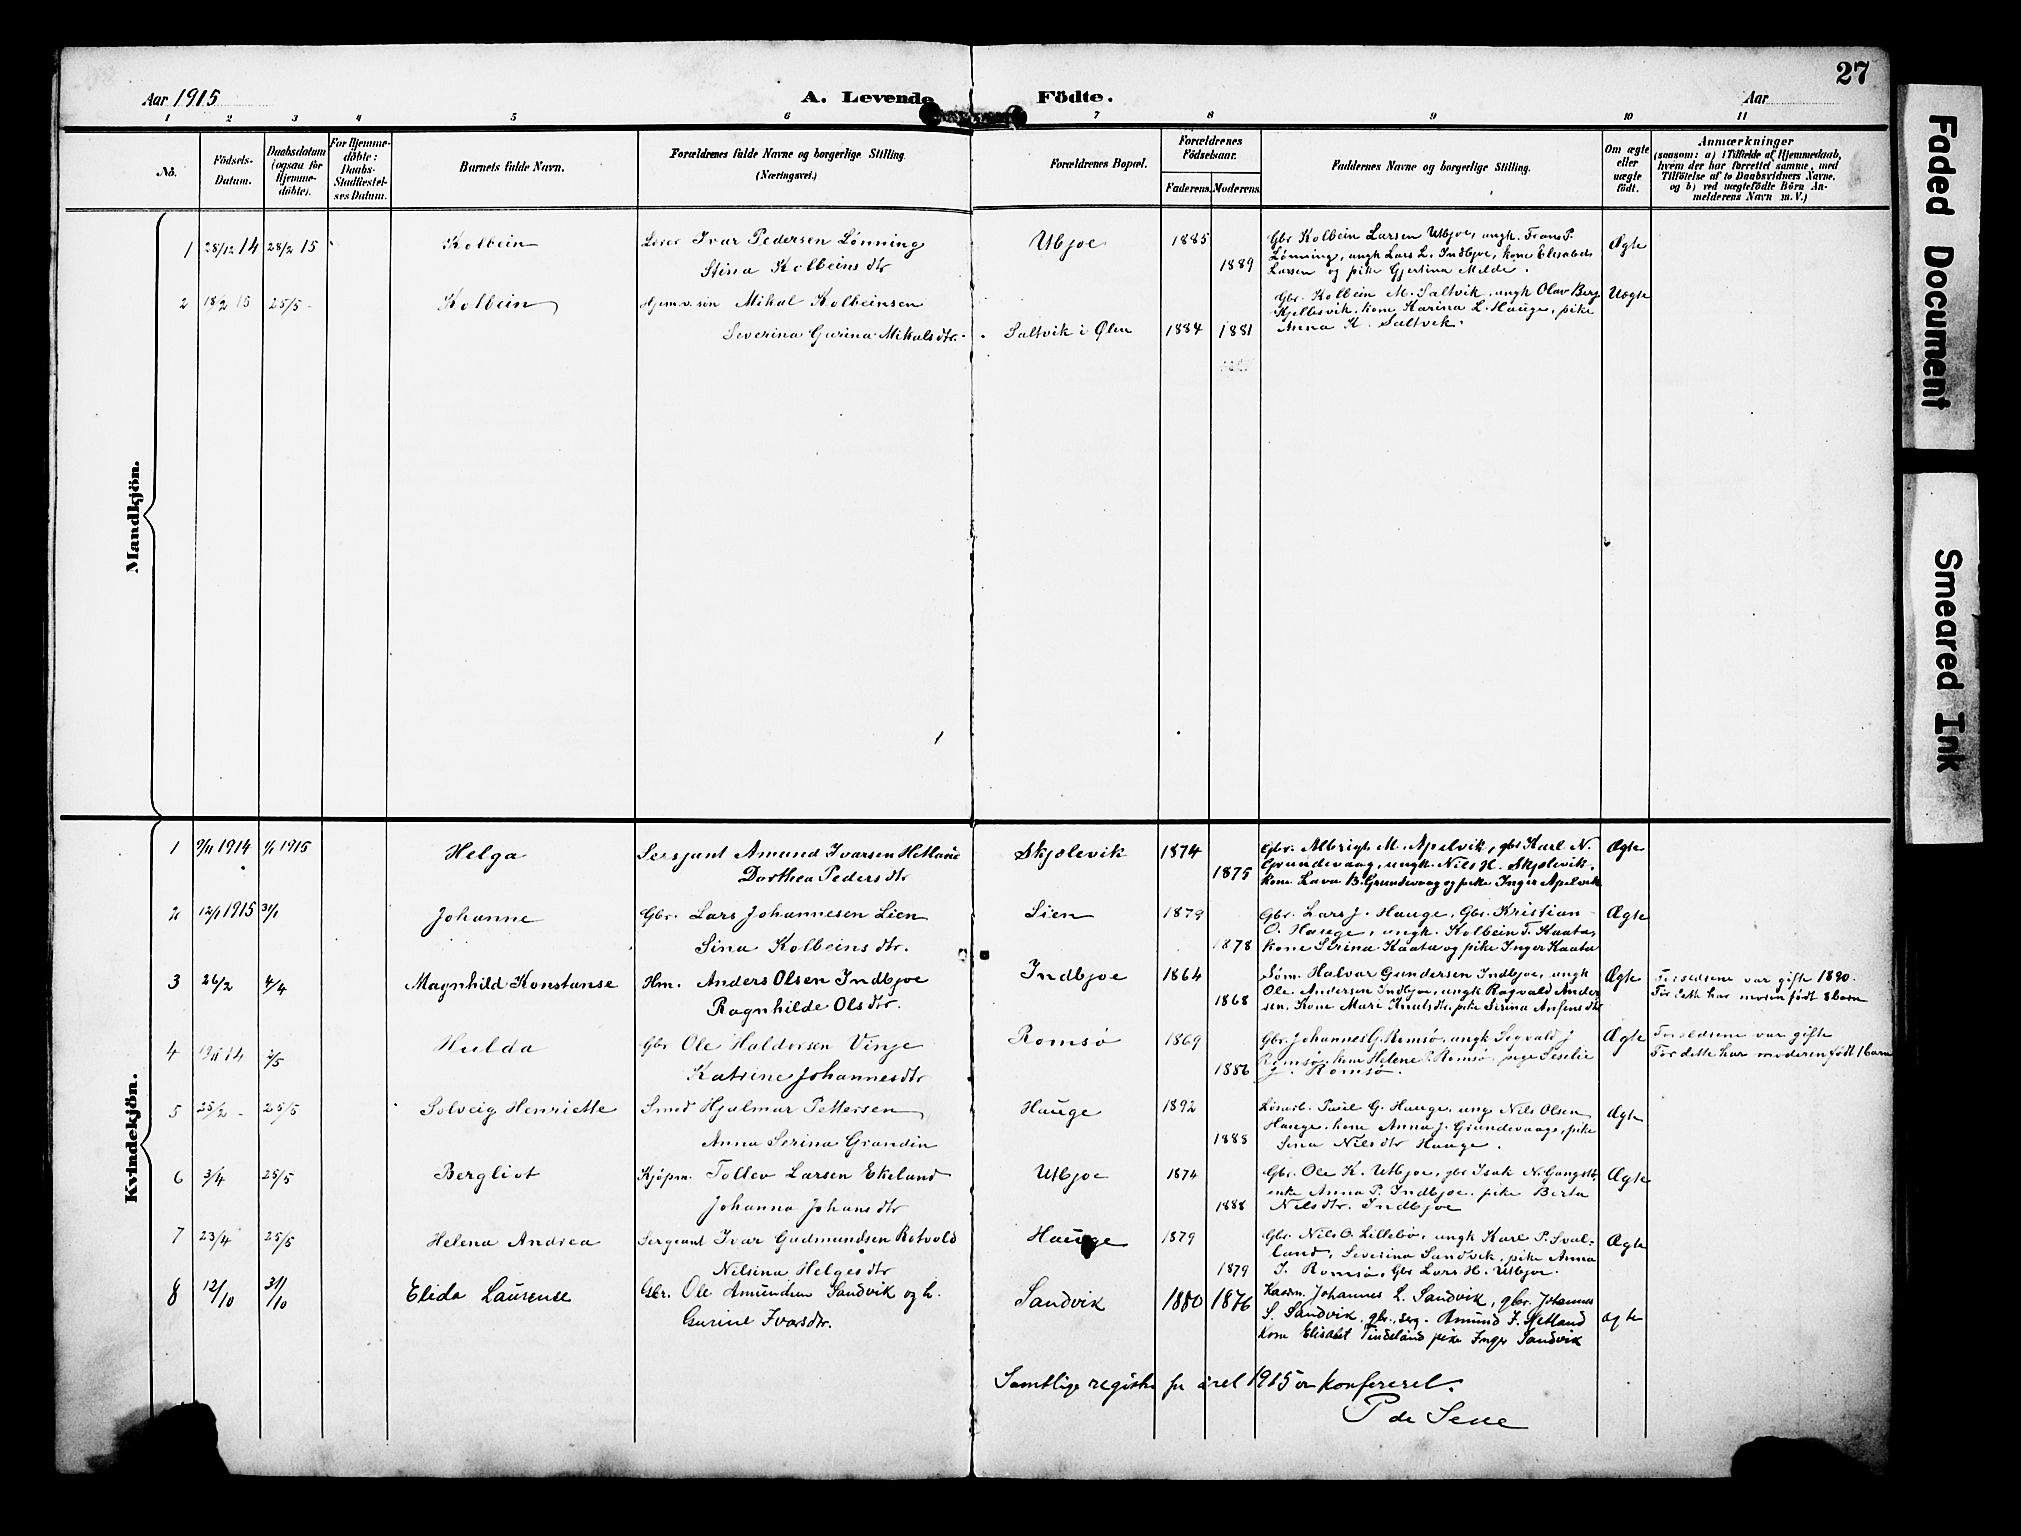 27
Aar 1915
A. Levende Födte.
Aar
1 2 3 4 5 6 7 8 9 10 11
No.
Födsels-Datum.
Daabsdatum (ogsaa for Hjemme-döbte).
For Hjemme-döbte: Daabs-Stadfæstel-ses Datum.
Barnets fulde Navn.
Forældrenes fulde Navne og borgerlige Stilling. (Næringsvei.)
Forældrenes Bopæl.
Forældrenes Födselsaar.
Faderens. Moderens.
Faddernes Navne og borgerlige Stilling.
Om ægte eller uægte födt.
Anmærkninger
(saasom: a) i Tilfælde af Hjemmedaab, hvem der har forrettet samme, med Tilföielse af to Daabsvidners Navne, og b) ved uægtefödte Börn An-melderens Navn m. V.)
Mandkjön.
1 28/12 14 28/2 15 Kolbein Lærer Ivar Pedersen Lønning Utbjoe 1885 Gbr Kolbein Larsen Utbjoe, ungk. Frans P. Ægte
Stina Kolbeinsdtr 1889 Lønning, ungk Lars L. Indbjoe, kone Elisabeth
Larsen og pike Gjertina Milde.
2 18/2 15 25/5 - Kolbein Hjem.v. søn Mikal Kolbeinsen Gbr. Kolbein M. Saltvik, ungk Olav Berg Uægte
Kjelbsvik, kone Karina L. Hauge, pike
Severina Gurina Mikalsdtr. - Saltvik i Ølen 1884 1881 Anna K. Saltvik.
Kvindekjön.
1 9/11 1914 1/1 1915 Helga Sersjant Amund Ivarsen Hetland Skjølevik 1874 Gbr. Albrigt M. Apelvik, gbr Karl N. Ægte
Dorthea Pedersdtr 1875 Grundevaag, ungk. Nils H. Skjølevik.
kone Lava B. Grundevaag og pike Inger Apelvik
2 12/1 1915 31/1 Johanne Gbr. Lars Johannesen Lien Lien 1879 Gbr. Lars J. Hauge, Gbr. Kristian Ægte
Sina Kolbeinsdtr. 1878 O. Hauge, ungk. Kolbein T. Kaata,
kone Serina Kaata og pike Inger Kaata
3 26/2 4/4 Magnhild Konstanse Hm. Anders Olsen Indbjoe Indbjoe 1864 Søm. Halvar Gundersen Indbjoe, ungk Ægte Forældrene var gifte 1890.
Ragnhilde Olsdtr. 1868 Ole Andersen Indbjoe, ungk Ragvald Ander Før dette har moren født 8 barn
sen, Kone Mari Knutsdtr, pike Serina Anfensdtr
4 14 2/5 Hulda Gbr Ole Haldorsen Vinje Romsø 1869 Gbr. Johannes G. Romsø, ungk Segvald J Ægte Forældrene var gifte
Katrine Johannesdtr 1886 Romsø, kone Helene Romsø, pige Seselie Før dette har moderen født 1 barn
J. Romsø.
5 25/2 - 25/5 Solveig Henriette Smed Hjalmar Pettersen Hauge 1892 Løsarb. Paul G. Hauge, ung Nils Olsen Ægte
Anna Serina Grandin 1888 Hauge, kone Anna J. Grundevaage, pike
Sina Nilsdtr Hauge.
6 3/4 25/5 Bergliot Kjøpm. Tollev Larsen Ekeland Utbjoe 1874 Gbr. Ole K. Utbjoe, gbr Isak N. Gangstø, Ægte
Johanna Johansdtr 1888 enke Anna P. Indbjoe, pike Berta
Nilsdtr. Indbjoe
7 23/4 25/5 Helena Andrea Sergeant Ivar Gudmundsen Rotvold Hauge 1879 Gbr. Nils O. Lillebø, ungk Karl P. Sval- Ægte
Nilsina Helgesdtr 1879 land, Severina Sandvik, pike Anna
J. Romsø, Gbr Lars H. Utbjoe.
8 12/10 31/10 Elida Laurense Gbr. Ole Amundsen Sandvik og h. Sandvik 1880 1876 Kaarm. Johannes L. Sandvik, gbr. Johannes ægte
Gurine Ivarsdtr. S. Sandvik, gbr., serg. Amund I. Hetland
Kone Elisabet Tindeland pike Inger Sandvik
Samtlige registre for året 1915 er konfereret.
P de Seve
Faded Document
Smeared Ink